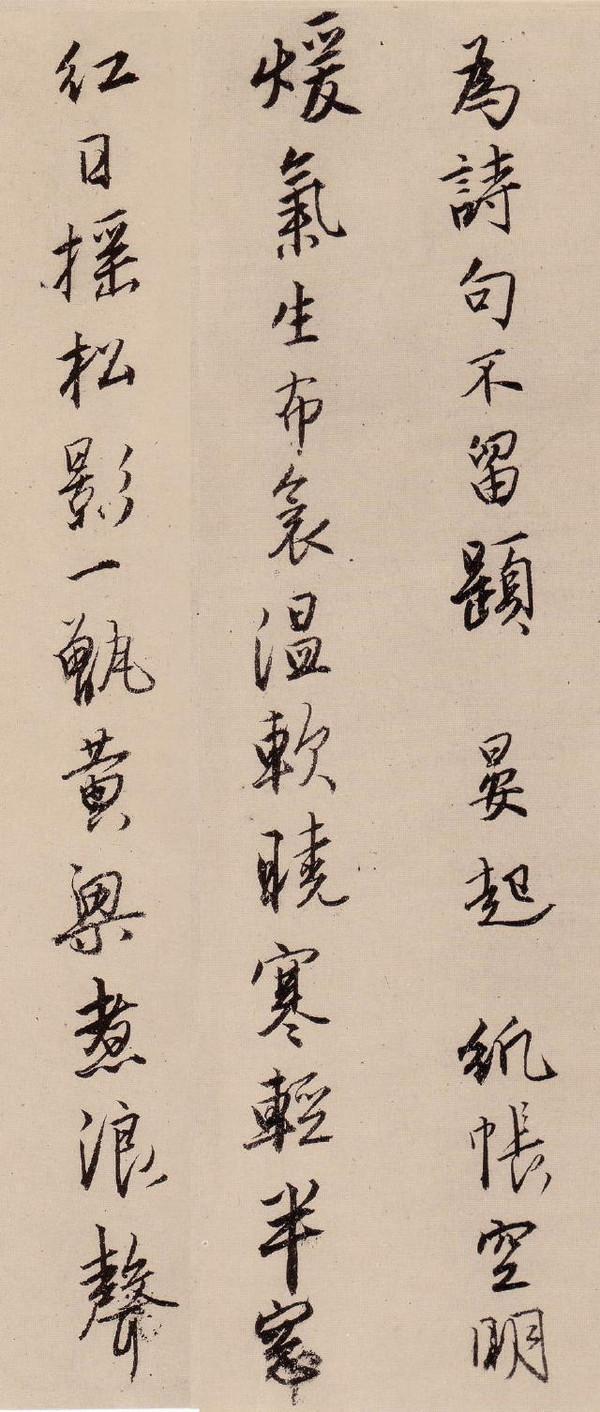 為詩句不留題 晏起 紙帳空明
煖氣生布衾温軟曉寒輕半窓
紅日揺松影一甑黄粱煮浪聲